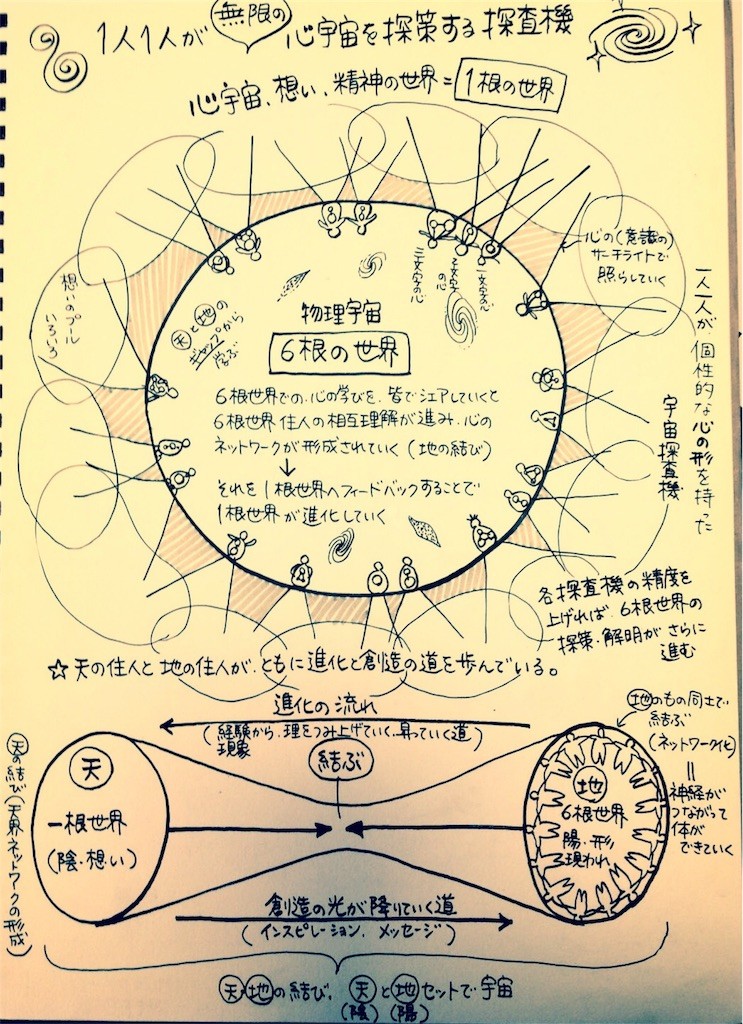 1人1人が 無限の 心宇宙を探策する探査機
心宇宙、想い、精神の世界=1根の世界
心の(意識の)
サーチライトで
照らしていく
想いのプール
いろいろ
三文字の心
2文字の心
一文字の心
天と地の
ギャップから
学ぶ
物理宇宙
6根の世界
6根世界での、心の学びを、皆でシェアしていくと
6根世界住人の相互理解が進み、心の
ネットワークが形成されていく(地の結び)
↓
それを1根世界へフィードバックすることで
1根世界が進化していく
一人一人が、個性的な心の形を持った
宇宙探査機
各探査機の精度を
上げれば、6根世界の
探策・解明がさらに
進む
☆天の住人と地の住人が、ともに進化と創造の道を歩んでいる。
進化の流れ
(経験から、理をつみ上げていく、昇っていく道)
現象
結ぶ
地のもの同士で
結ぶ
(ネットワーク化)
=
神経が
つながって
体が
できていく
天の結び(天界ネットワークの形成)
天
一根世界
(陰・想い)
地
6根世界
陽・形
現われ
創造の光が降りていく道
(インスピレーション、メッセージ)
天・地の結び、天と地セットで宇宙
(陰)(陽)